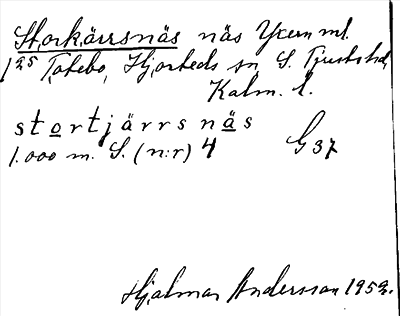 Storkärrsnäs näs Yxern ml.
1²⁵ Totebo, Hjorteds sn S. Tjusts hd,
Kalm. l.
stortjärrsnäs
1.000 m. S. (n:r) 4 G 37
Hjalmar Andersson 1952.